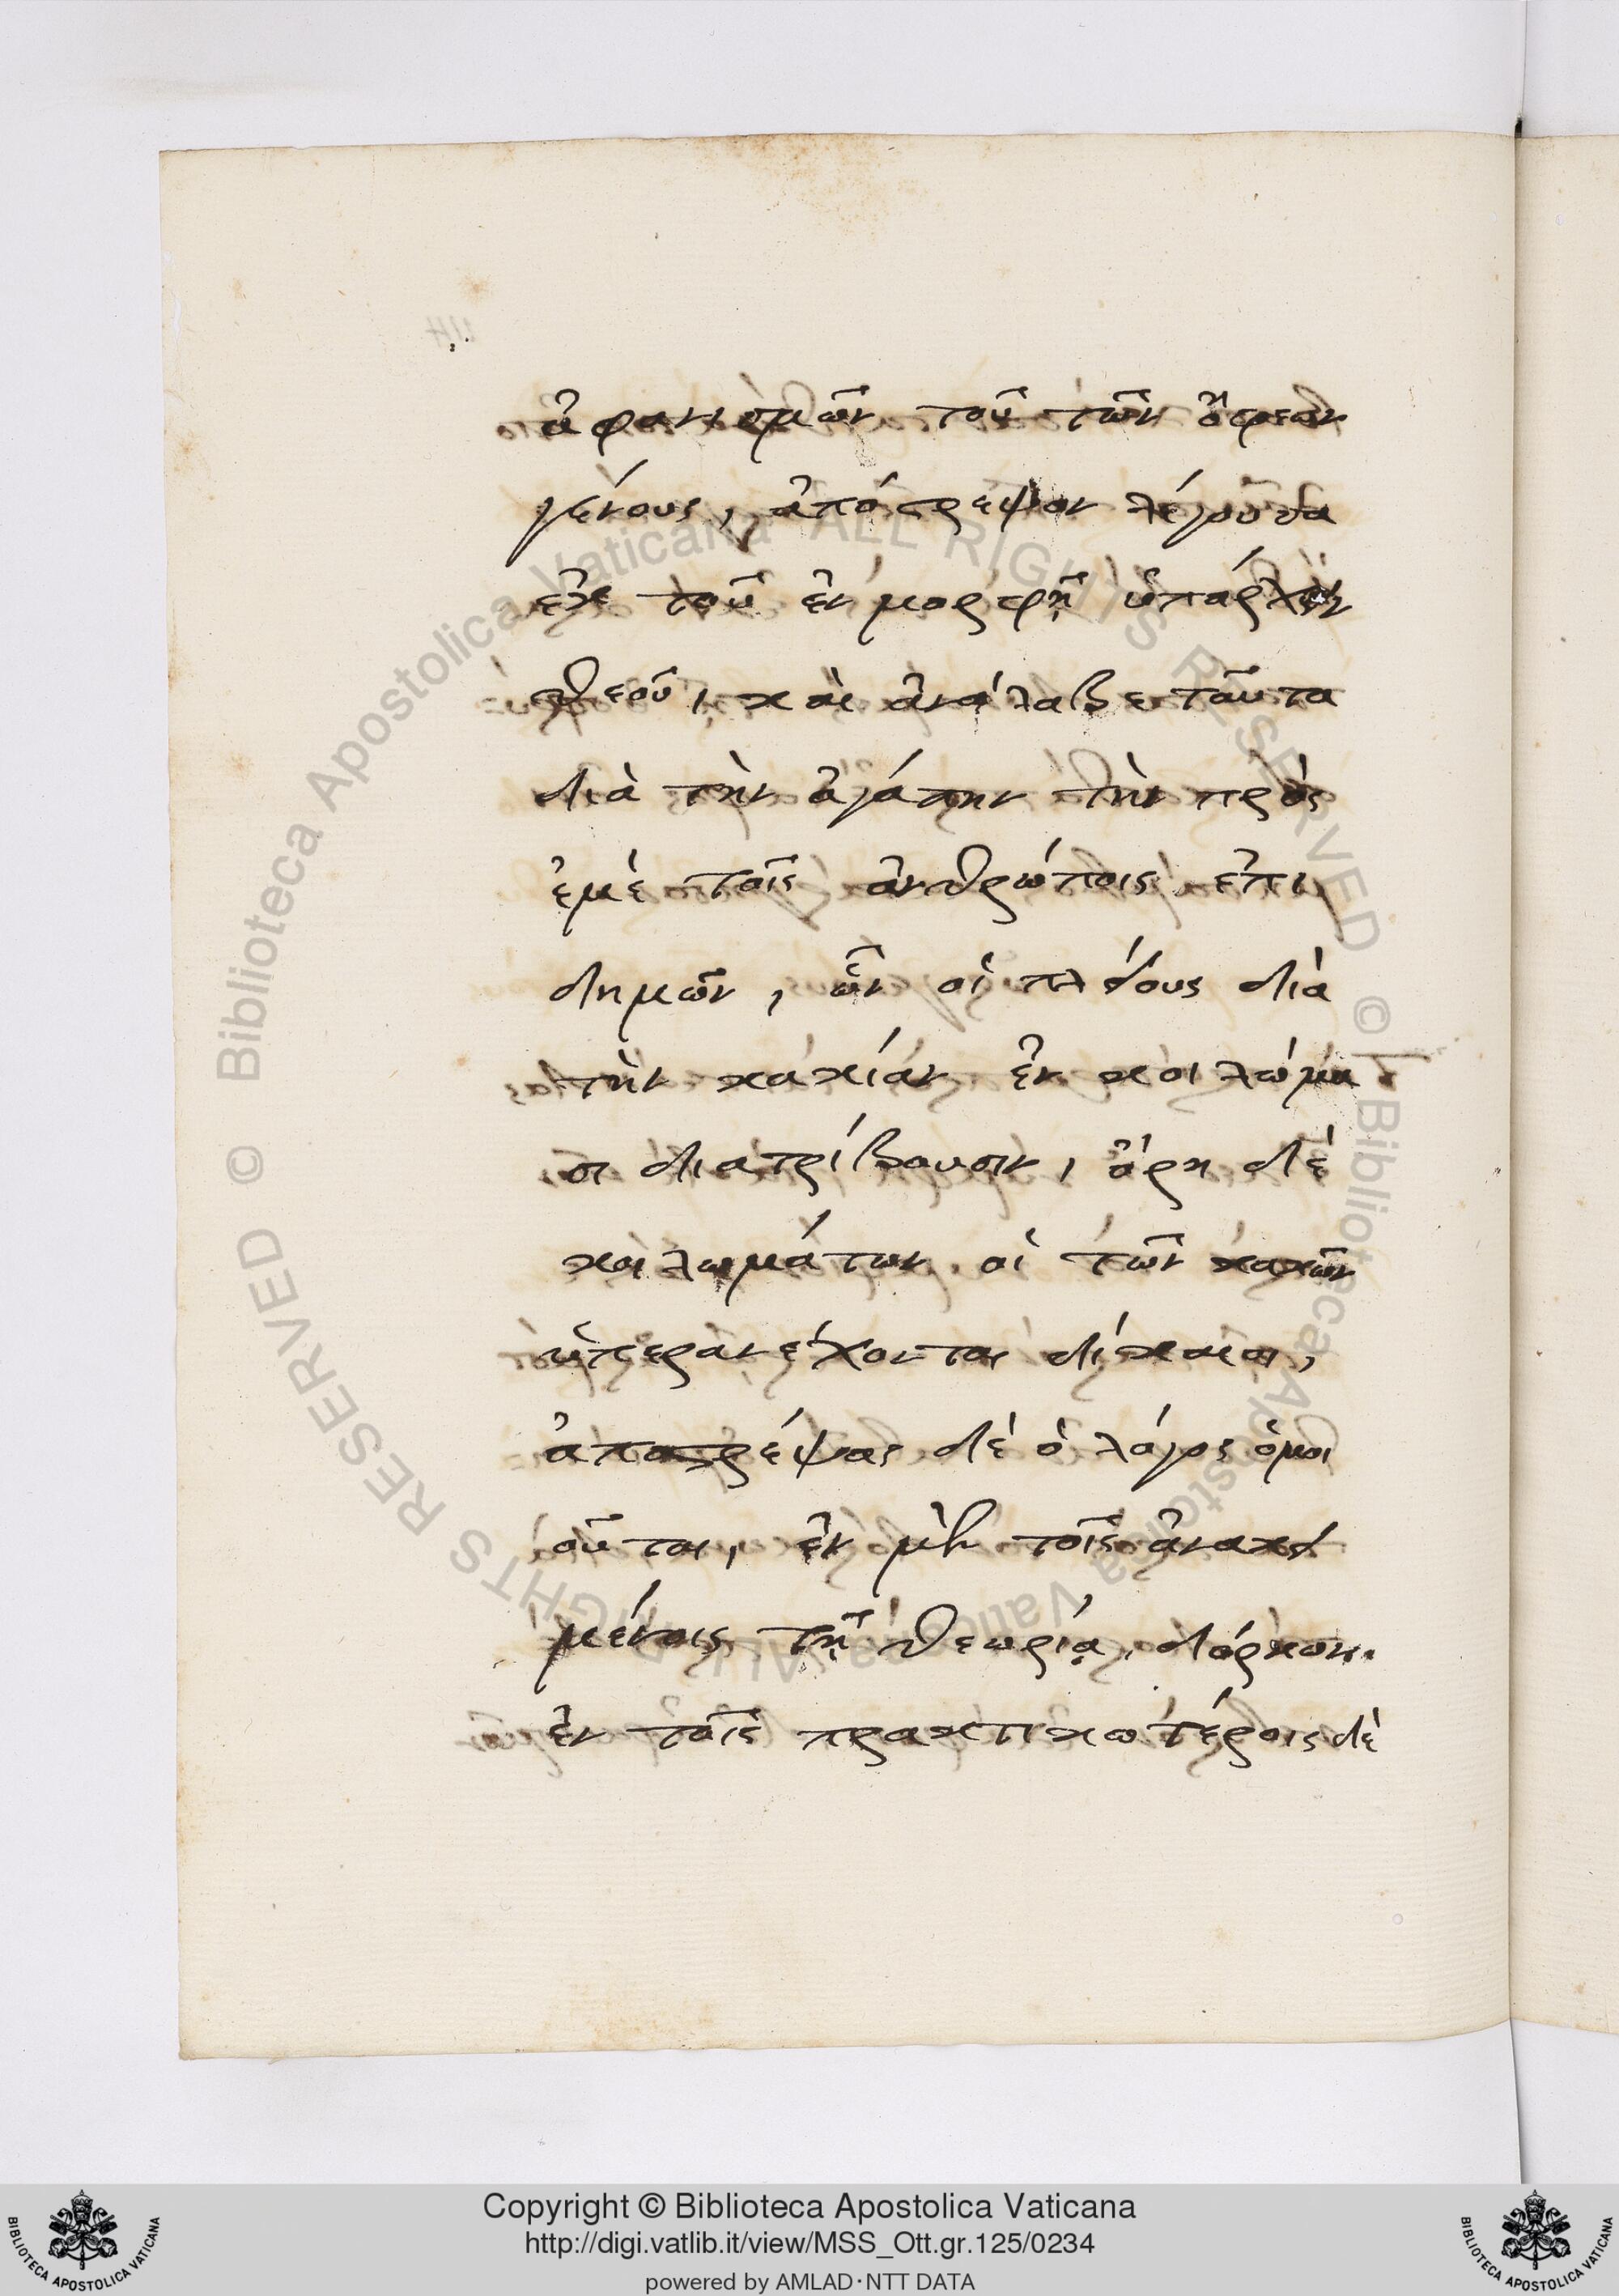 ἀφανισμῶν τοῦ τῶν ὄφεων
γένους, ἀπόστρεψον λέγουσα
ἐκ τοῦ ἐν μορφῇ ὑπάρχειν
θεοῦ, καὶ ἀνάλαβε ταῦτα
διὰ τὴν ἀγάπην τὴν πρὸς
ἐμὲ τοῖς ἀνθρώποις ἐπι
δημῶν, ὧν οἱ πλείους διὰ
τὴν κακίαν ἐν κοιλώμα
σι διατρίβουσιν, ὄρη δὲ
κοιλωμάτων οἱ τῶν κακῶν
ὑπερανέχονται δίκαιοι,
ἀποστρέψας δὲ ὁ λόγος ὁμοι
οῦται, ἐν μὲν τοῖς ἀνακει
μένοις τῇ θεωρίᾳ, δόρκωνι.
ἐν τοῖς πρακτικωτέροις δὲ
Copyright © Biblioteca Apostolica Vaticana
http://digi.vatlib.it/view/MSS_Ott.gr.125/0234
powered by AMLAD·NTT DATA
BIBLIOTECA APOSTOLICA VATICANA
BIBLIOTECA APOSTOLICA VATICANA
© Biblioteca Apostolica Vaticana ALL RIGHTS RESERVED © Biblioteca Apostolica Vaticana ALL RIGHTS RESERVED